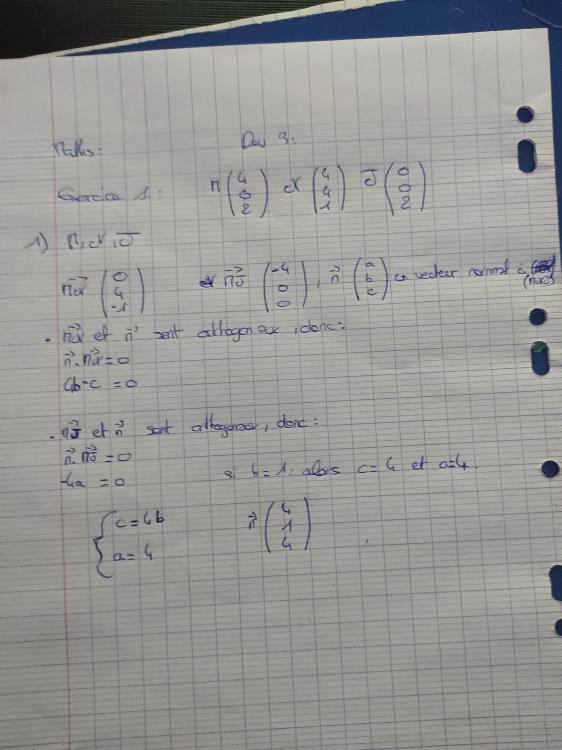 Maths: Dm 3:
Exercice 1: M (4 0 2) N (4 4 1) J (0 0 2)
1) M, N, J
MN→ (0 4 -1) et MJ→ (-4 0 0), n→ (a b c) un vecteur normal à (MNJ)
. MN→ et n→ sont orthogonaux, donc:
n→.MN→ = 0
4b-c = 0
. MJ→ et n→ sont orthogonaux, donc:
n→.MJ→ = 0
-4a = 0 si b=1. alors c=4 et a=4.
{ c=4b n→ (4 1 4)
a=4